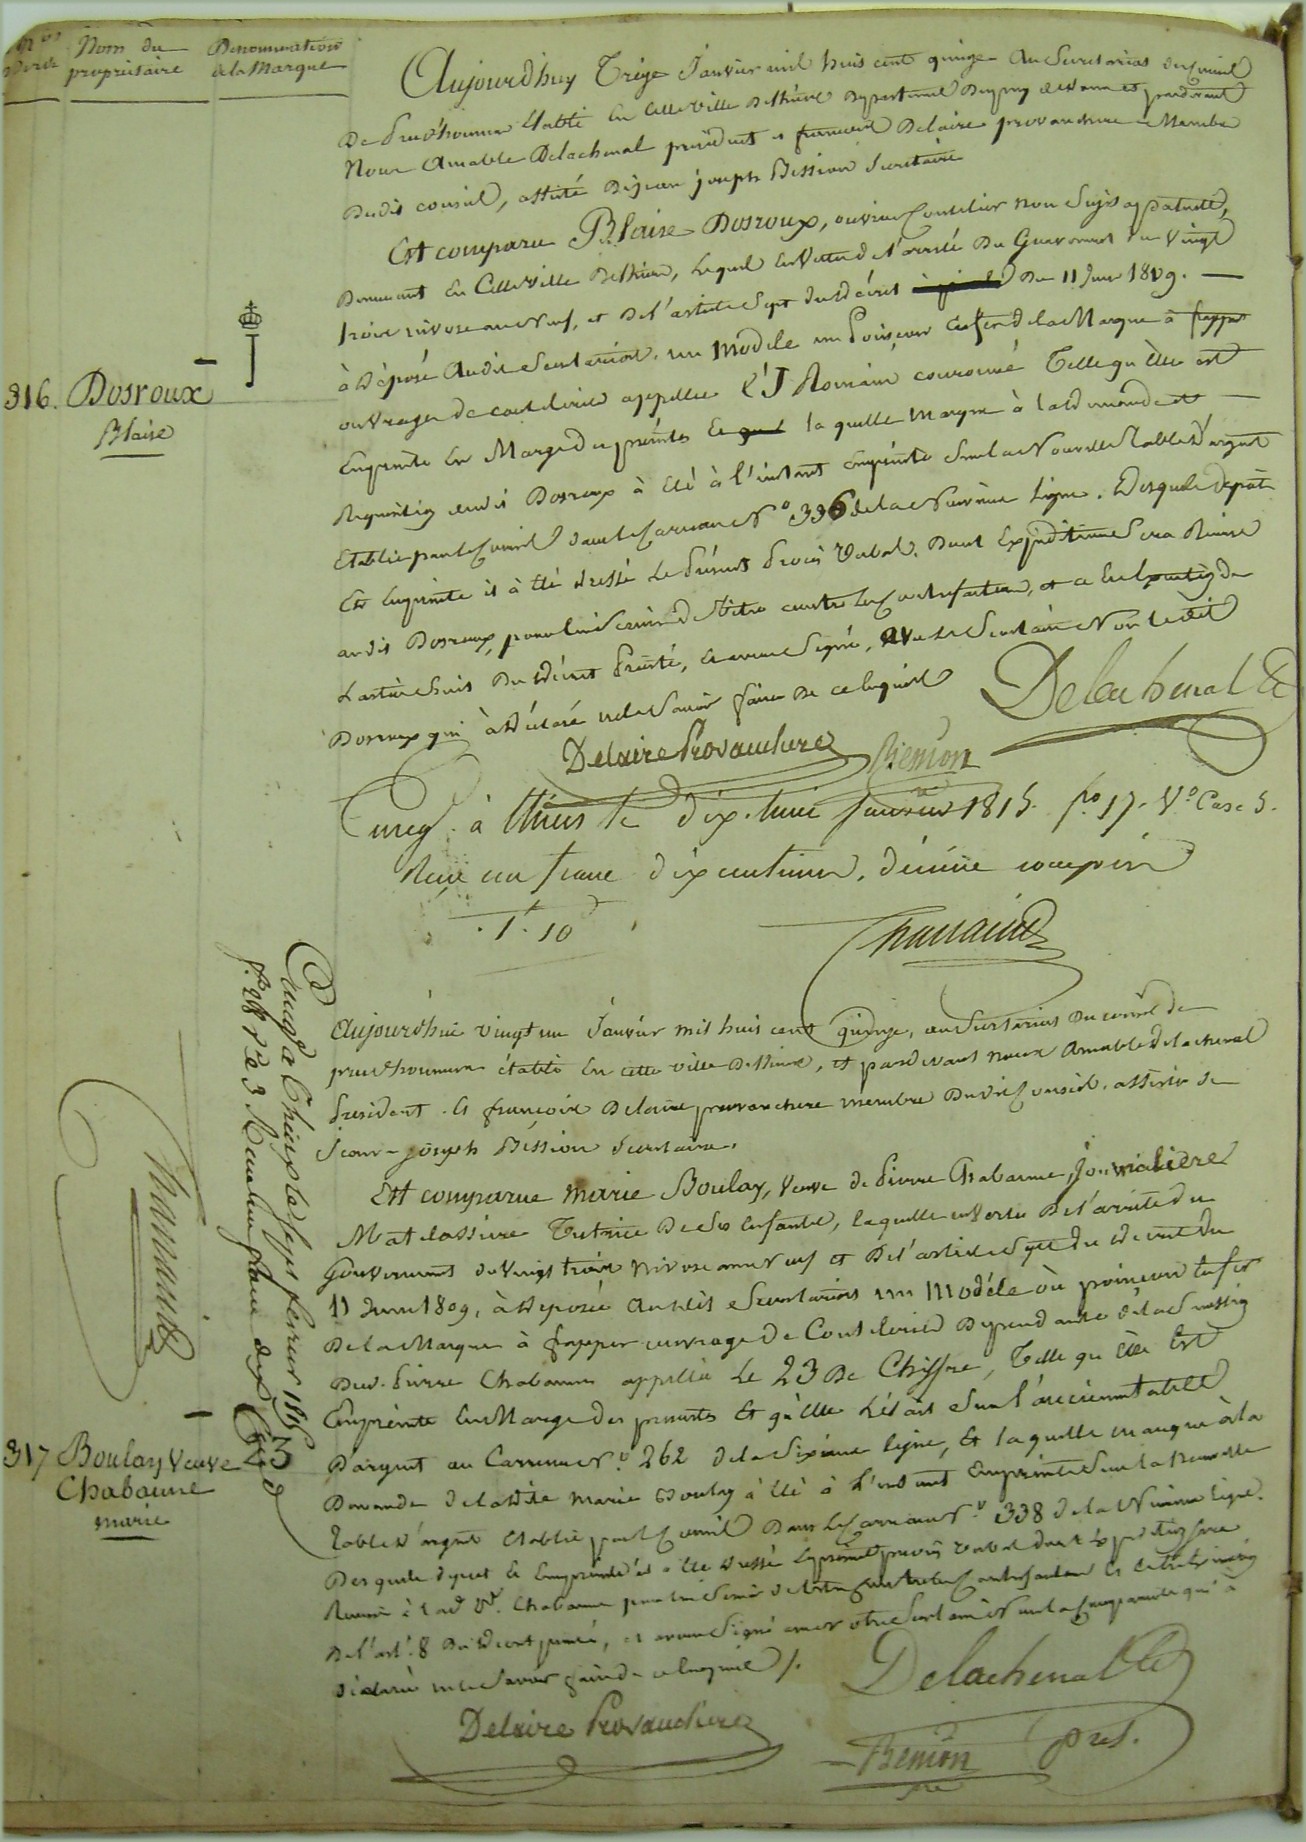 Nos
d'ordre
Nom du
propriétaire
Denomination
de la Marque
Aujourdhuy Treize Janvier mil huit cent quinze au Secretariat du Conseil
De Prud'hommes Etabli En Cette ville De thiers Departement Du puy de dome et pardevant
Nous Amable Delachenal president et francois Delaire provanchere Membre
Dudit conseil, assisté De jean joseph Bession Secretaire
Est comparu Blaise Dosroux, ouvrier Coutelier non Sujet a patente,
Demeurant En Cette ville De thiers, Lequel En Vertu de l'arrêté Du Gouvernement du Vingt
trois nivose an Neuf, et De l'article Sept du décret Du 11 Juin 1809.
à Déposé Audit Secretariat un modele ou Poinçon En fer de la Marque à frapper
ouvrages de coutelerie appellée L'J Romain couronné Telle qu'elle est
Empreinte En Marge du présentes laquelle marque à la demande et
Requisition dudit Dosroux à été à l'instant Empreinte Sur la Nouvelle Table d'argent
Etablie par le Conseil dans le Carreau No 336 de la Neuvieme Ligne. Desquels dépôt
Et Empreinte il à été dressé Le Présent Procès Verbal. Dont Expédition Sera Remise
audit Dosroux, pour lui Servir de Titre contre les Contrefacteurs, et ce En Execution de
L'article huit Du décret Précité, et avons Signé, avec Le Secretaire Non Ledit
Dosroux qui à Déclaré ne le Savoir faire De ce Enquis
Delachenal
Delaire Provanchere
Bession
316. Dosroux
Blaise
Enreg. à thiers le dix-huit Janvier 1815. fo 17. Vo Case 5.
Reçu un franc dix centimes, décime compris
1f 10
Chassaing
Aujourd'hui vingt un Janvier mil huit cent quinze, au Secretariat Du conseil de
prud'hommes établi En cette ville De thiers, et pardevant nous Amable Delachenal
President. Et françois Delaire provanchere membre Dudit Conseil, assisté de
Jean-joseph Bession Secretaire.
Est comparue Marie Boulay, Veuve de Pierre Chabanne, Journaliere
Matelassière Tutrice De Ses Enfants, laquelle en vertu De l'arrêté du
Gouvernement du Vingt trois nivose an Neuf et De l'article Sept du décret Du
11 Juin 1809, à Déposée Audit Secretariat un Modéle ou poinçon En fer
De la Marque à frapper ouvrages De Coutelerie Dependante de la Succession
Dud. Pierre Chabanne appellée Le 23 De Chiffre, Telle qu'elle Est
Empreinte En Marge des présentes Et qu'elle L'était Sur l'ancienne table
D'argent au Carreau No 262 de la Sixieme ligne, Et laquelle marque à la
Demande de ladite Marie Boulay à été à L'instant Empreinte Sur la Nouvelle
Table d'argent Etablie par le Conseil Dans Le Carreau No 338 de la Neuvieme Ligne.
Desquels depot Et Empreinte il a été dressé Le présent procès verbal dont Expedition Sera
Remise à lad. Ve. Chabanne pour lui Servir de titre contre les Contrefacteurs Et ce En Execution
De l'art. 8 Du Décret precité, et avons Signé avec notre Secretaire Non la Comparante qui à
déclaré ne le Savoir faire de ce Enquise /.
Delachenal
Delaire Provanchere
Bession
pres.
317 Boulay Veuve
Chabanne
marie
23
Enreg. à Thiers le Sept fevrier 1815
Chassaing